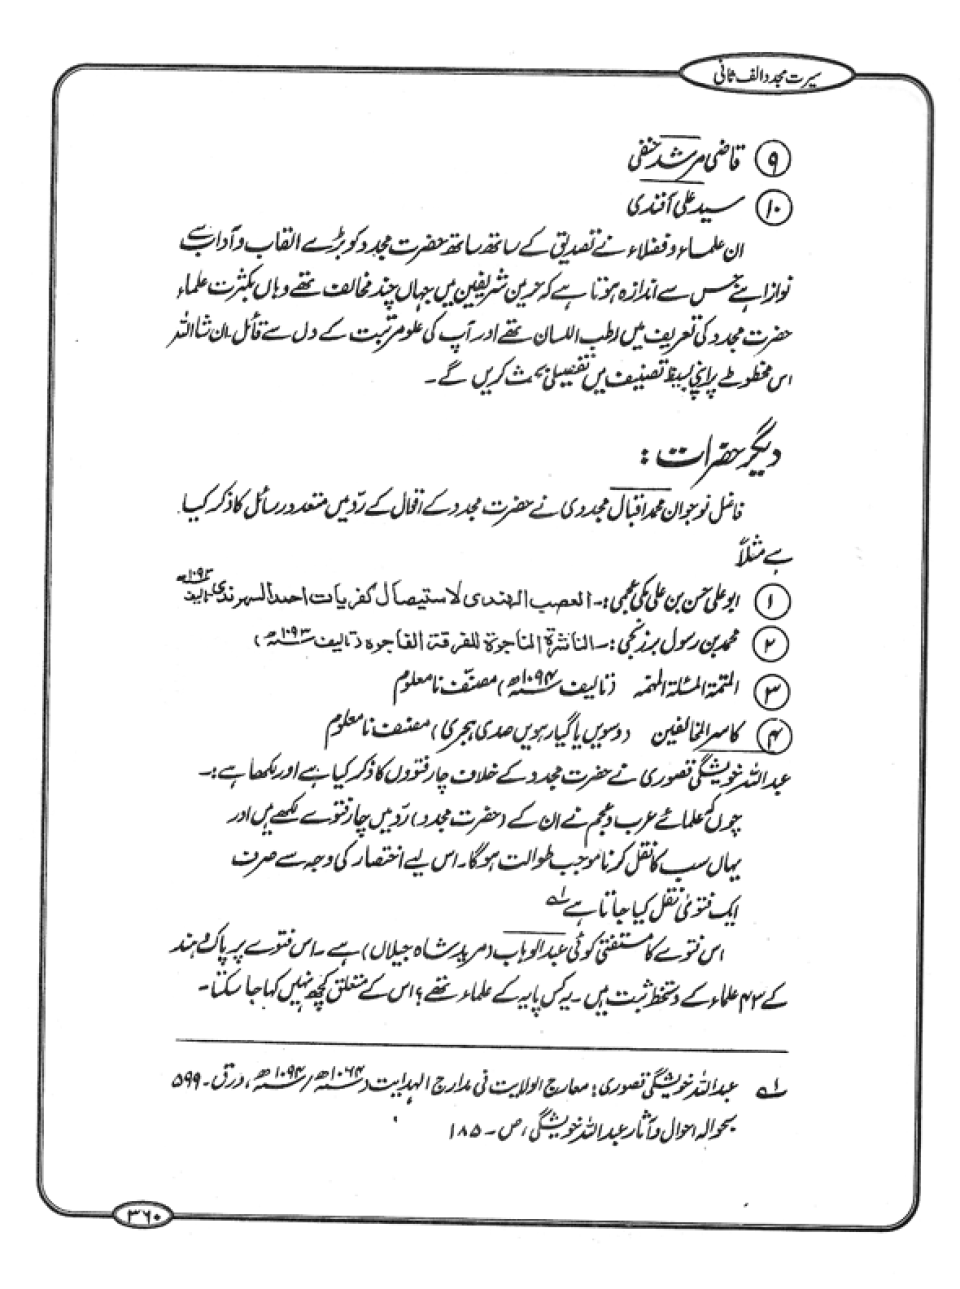 سیرت مجدد الف ثانی
۹ قاضی مرشد حنفی
۱۰ سید علی آفندی
ان علماء و فضلاء نے تصدیق کے ساتھ ساتھ حضرت مجدد کو بڑے القاب و آداب سے
نوازا ہے جس سے اندازہ ہوتا ہے کہ حرمین شریفین میں جہاں چند مخالف تھے وہاں بکثرت علماء
حضرت مجدد کی تعریف میں رطب اللسان تھے اور آپ کی علو مرتبت کے دل سے قائل۔ ان شاء اللہ
اس مخطوطے پر اپنی بسیط تصنیف میں تفصیلی بحث کریں گے۔
دیگر حضرات :
فاضل نوجوان محمد اقبال مجددی نے حضرت مجدد کے اقوال کے ردّ میں متعدد رسائل کا ذکر کیا
ہے مثلاً
۱ ابو علی حسن بن علی مکی عجمی :۔ العصب الہندی لاستیصال کفریات احمد السہرندی تالیف ۱۰۹۳ھ
۲ محمد بن رسول برزنجی :۔ الناشرۃ الناجرۃ للفرقۃ الفاجرہ (تالیف ۱۰۹۳ھ)
۳ المتمۃ المسئلۃ المہمہ (تالیف ۱۰۹۴ھ) مصنّف نامعلوم
۴ کاسر المخالفین (دسویں یا گیارہویں صدی ہجری) مصنف نامعلوم
عبداللہ خویشگی قصوری نے حضرت مجدد کے خلاف چار فتووں کا ذکر کیا ہے اور لکھا ہے :۔
چوں کہ علمائے عرب و عجم نے ان کے (حضرت مجدد) ردّ میں چار فتوے لکھے ہیں اور
یہاں سب کا نقل کرنا موجب طوالت ہوگا۔ اس لیے اختصار کی وجہ سے صرف
ایک فتویٰ نقل کیا جاتا ہے ۱ھ
اس فتوے کا مستفتی کوئی عبدالوہاب (مرید شاہ جیلاں) ہے ۔ اس فتوے پر پاک و ہند
کے ۴۳ علماء کے دستخط ثبت ہیں ۔ یہ کس پایہ کے علماء تھے ؟ اس کے متعلق کچھ نہیں کہا جا سکتا۔
۱ھ عبداللہ خویشگی قصوری : معارج الولایت فی مدارج الہدایت (۱۰۶۴ھ / ۱۰۹۴ھ)، ورق۔ ۵۹۹
بحوالہ احوال و آثار عبداللہ خویشگی، ص ۔ ۱۸۵
۳۶۰